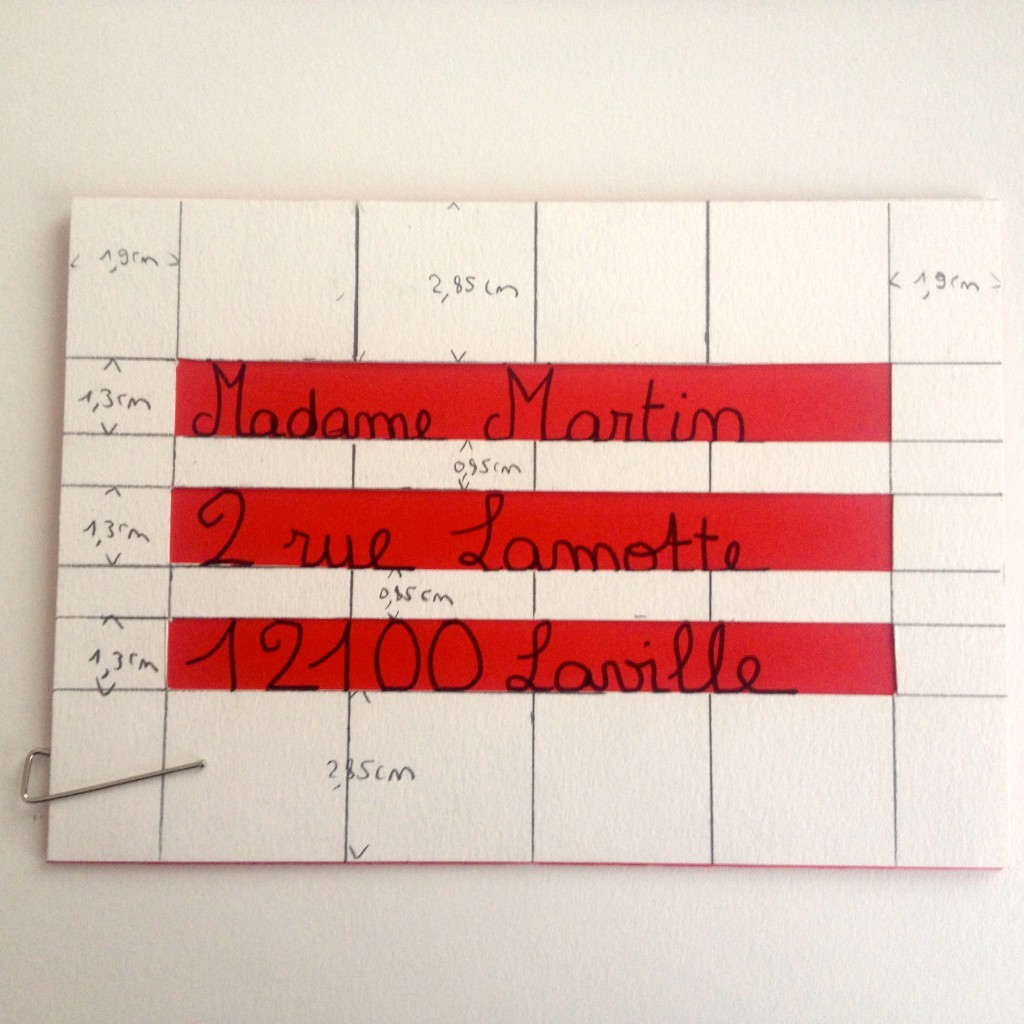 1,9cm
2,85cm
1,9cm
1,3cm
Madame Martin
0,85cm
1,3cm
2 rue Lamotte
0,85cm
1,3cm
12100 Laville
2,85cm